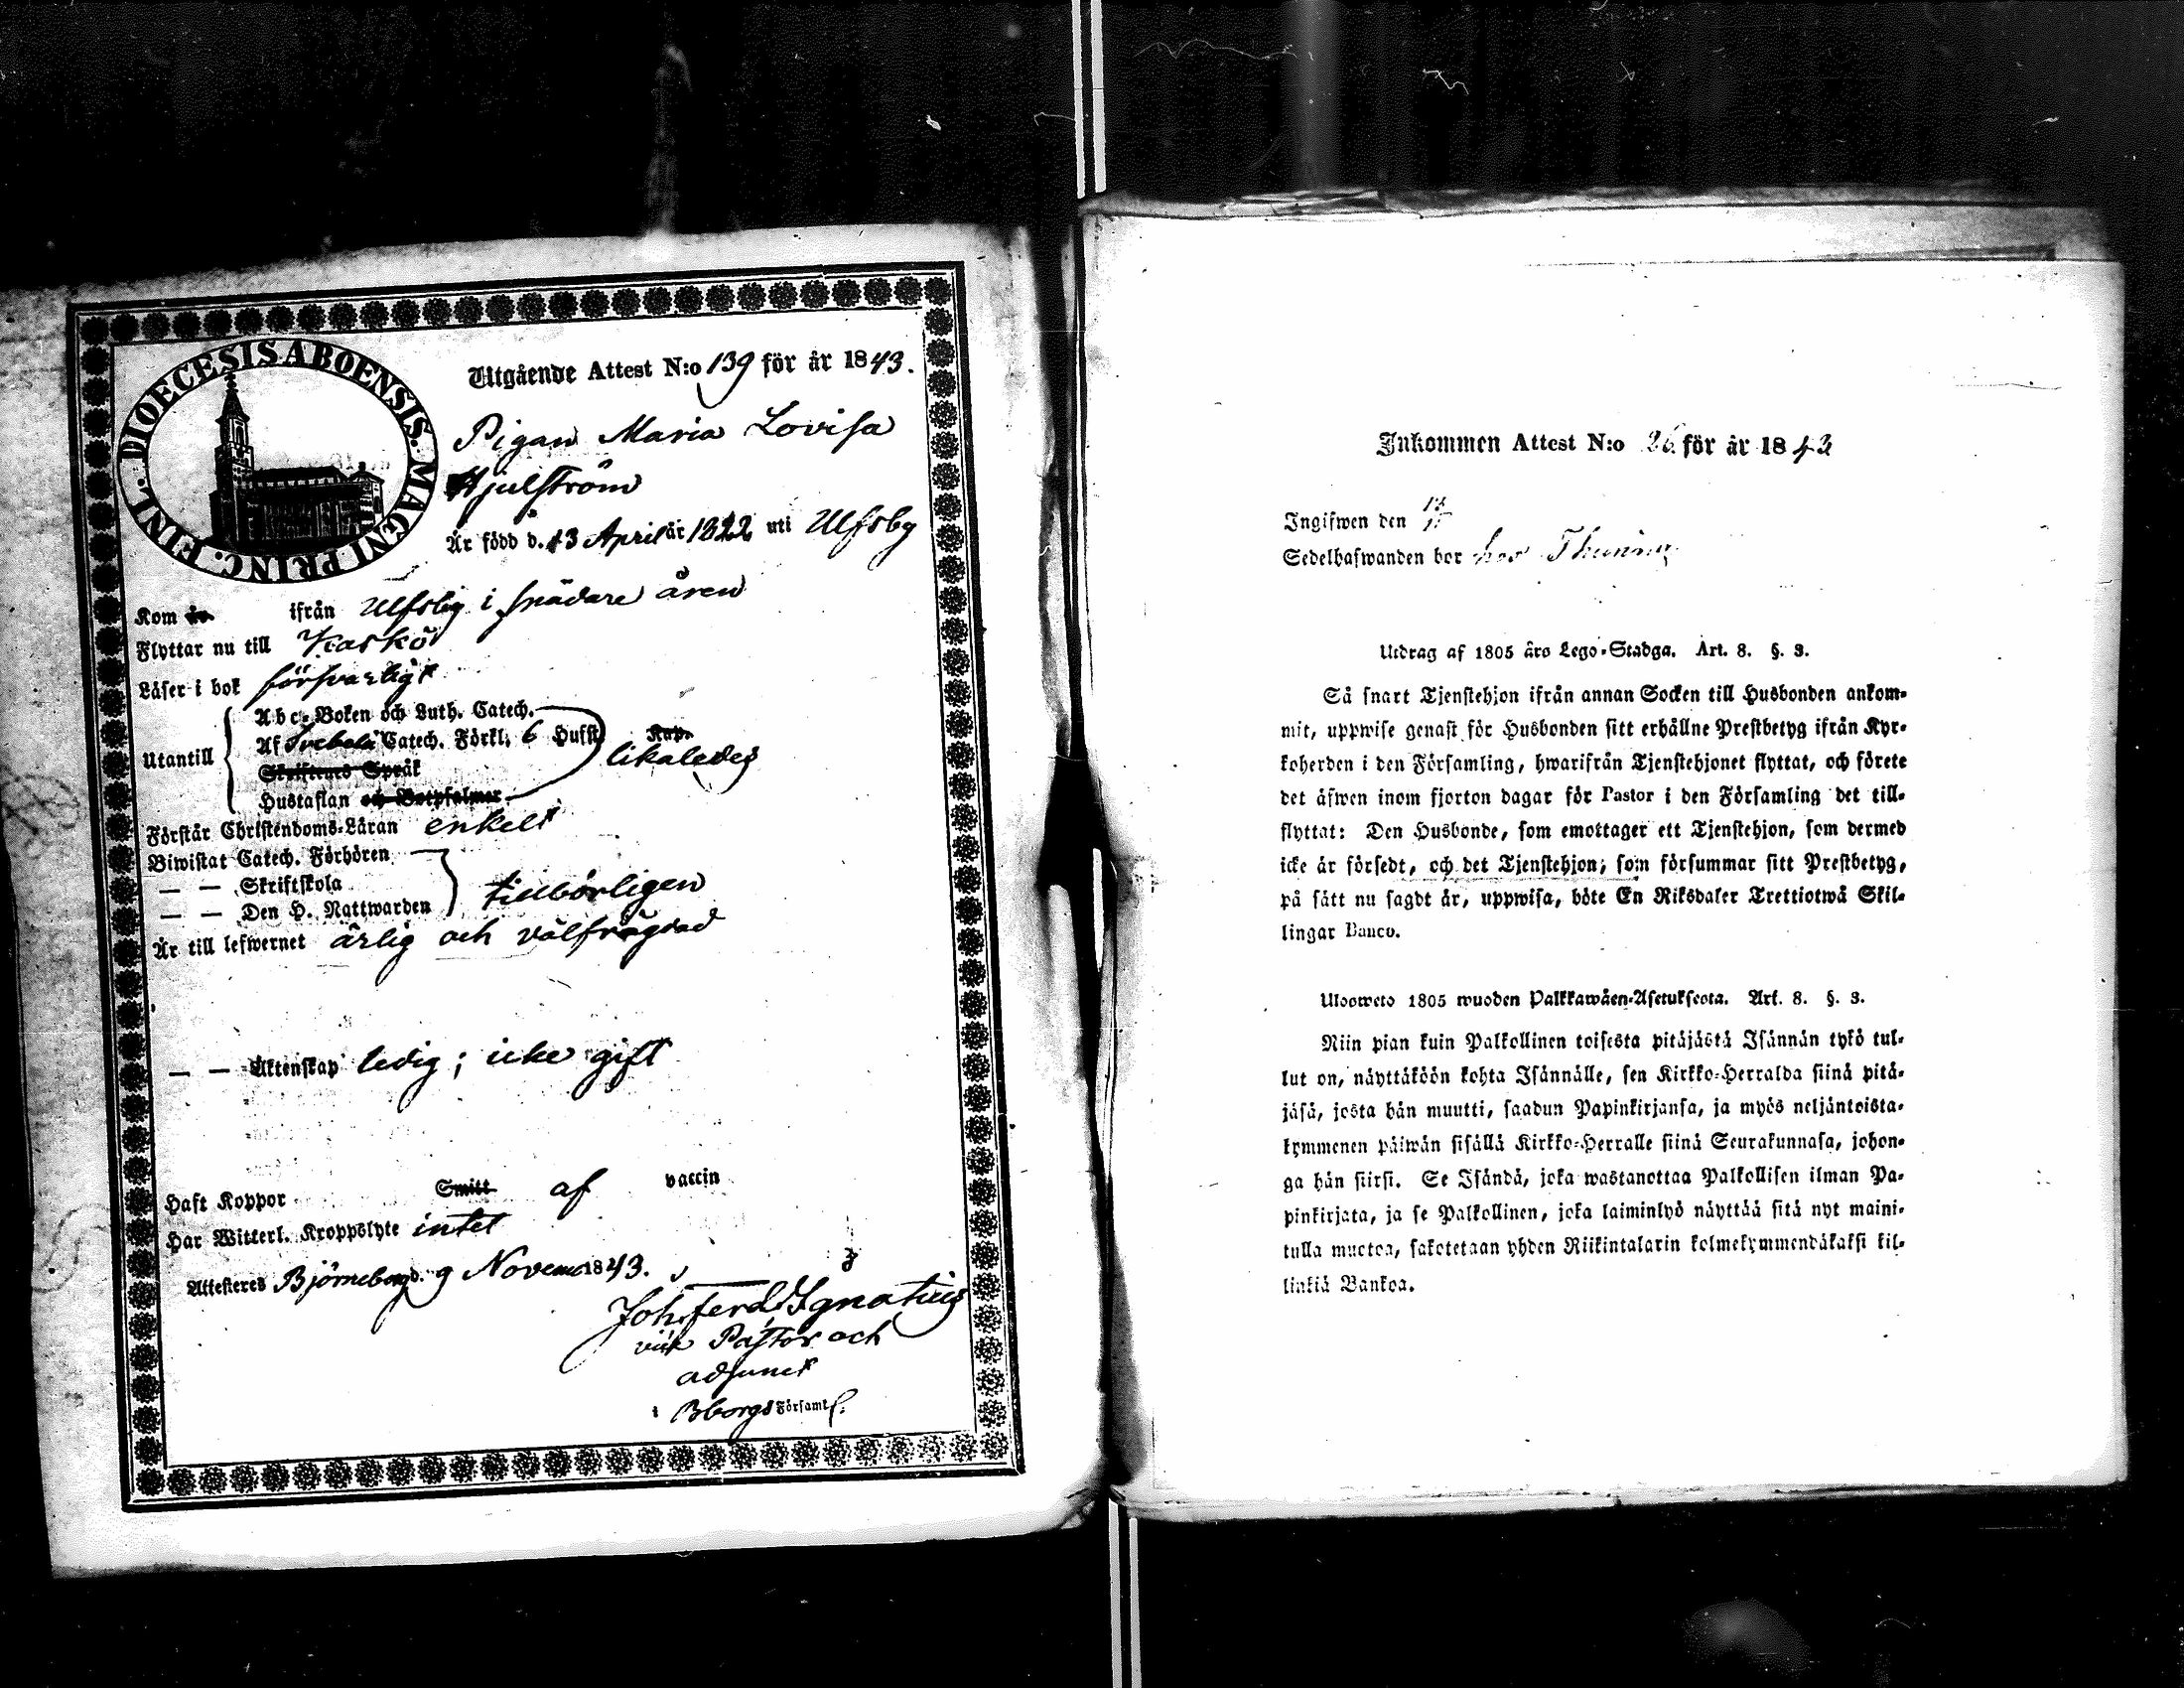 DIOECESIS ABOENSIS. MAGNI PRINC. FINL.
Utgående Attest N:o 139 för år 1843.
Pigan Maria Lovisa
Hjulström
Är född d. 13 April år 1822 uti Ulfsby
Kom år ifrån Ulfsby i spädare åren
Flyttar nu till Kaskö
Läser i bok försvarligt
Utantill
Abc-Boken och Luth. Catech.
Af Svebeli Catech. Förkl. 6 Hufst. Kap.
likaledes
Skriftens Språk
Hustaflan och Botpsalmer
Förstår Christendoms-Läran enkelt
Biwistat Catech. Förhören
— — Skriftskola
tillbörligen
— — Den H. Nattwarden
Är till lefwernet ärlig och välfrägdad
— — Äktenskap ledig; icke gift
Haft Koppor Smitt af vaccin
Har Witterl. Kroppslyte intet
Attesteras Björneborg d. 9 Novemb 1843.
Joh. Ferd. Ignatius
vik Pastor och
adjunct
i Bborgs Församl.
Inkommen Attest N:o 26 för år 1843
Ingifwen den
Sedelhafwanden bor hos
Utdrag af 1805 års Lego-Stadga. Art. 8. §. 3.
Så snart Tjenstehjon ifrån annan Socken till Husbonden ankom-
mit, uppwise genast för Husbonden sitt erhållne Prestbetyg ifrån Kyr-
koherden i den Församling, hwarifrån Tjenstehjonet flyttat, och förete
det äfwen inom fjorton dagar för Pastor i den Församling det till-
flyttat: Den Husbonde, som emottager ett Tjenstehjon, som dermed
icke är försedt, och det Tjenstehjon, som försummar sitt Prestbetyg,
på sätt nu sagdt är, uppwisa, böte En Riksdaler Trettiotwå Skil-
lingar Banco.
Ulosweto 1805 wuoden Palkkawäen-Asetuksesta. Art. 8. §. 3.
Niin pian kuin Palkollinen toisesta pitäjästä Isännän tykö tul-
lut on, näyttäköön kohta Isännälle, sen Kirkko-Herralda siinä pitä-
jäsä, josta hän muutti, saadun Papinkirjansa, ja myös neljäntoista-
kymmenen päiwän sisällä Kirkko-Herralle siinä Seurakunnasa, johon-
ga hän siirsi. Se Isändä, joka wastanottaa Palkollisen ilman Pa-
pinkirjata, ja se Palkollinen, joka laiminlyö näyttää sitä nyt maini-
tulla muotoa, sakotetaan yhden Riikintalarin kolmekymmendäkaksi kil-
linkiä Bankoa.